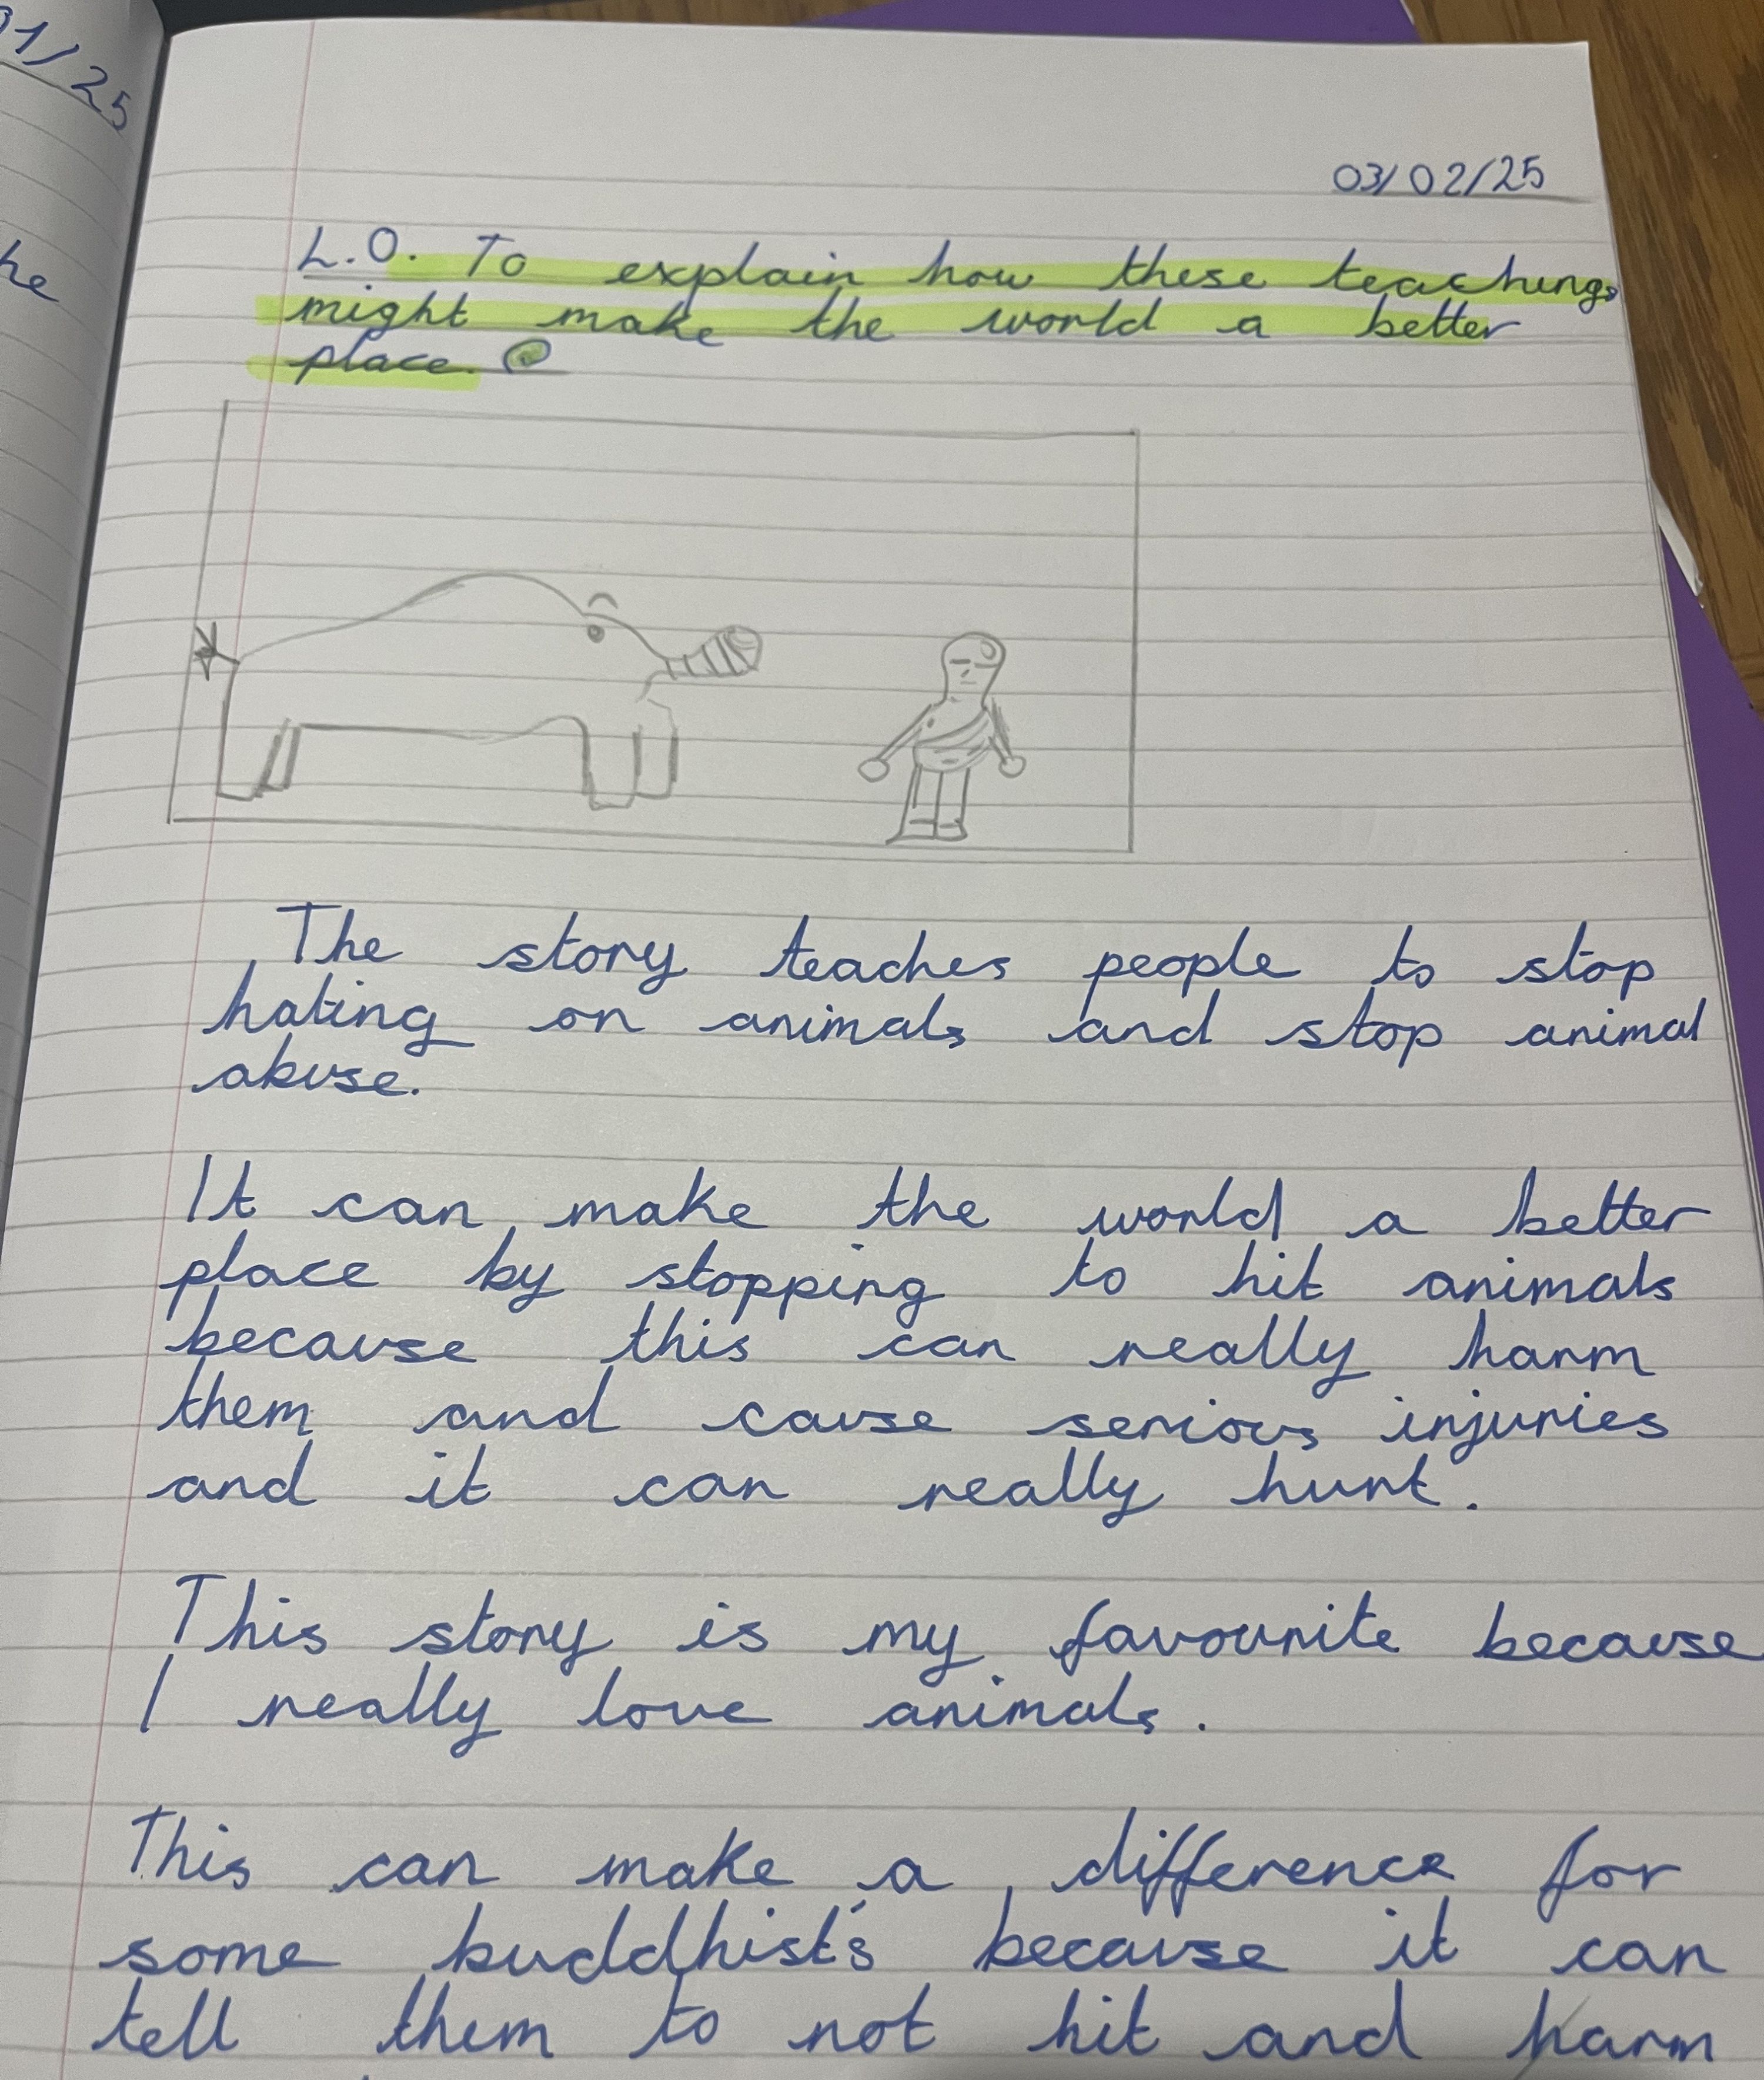 91/25
he
03/02/25
L.O. To explain how these teachings
might make the world a better
place.
The story teaches people to stop
hating on animals and stop animal
abuse.
It can make the world a better
place by stopping to hit animals
because this can really harm
them and cause serious injuries
and it can really hurt.
This story is my favourite because
I really love animals.
This can make a difference for
some buddhist's because it can
tell them to not hit and harm